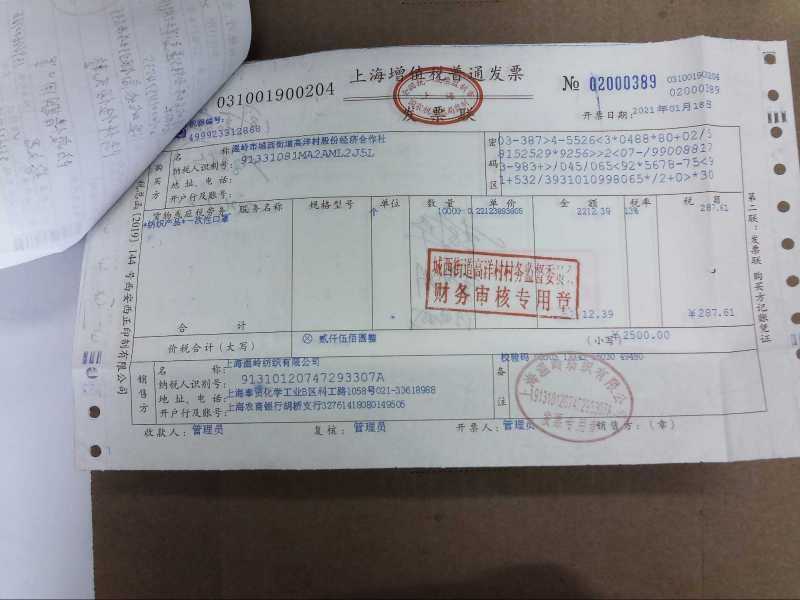 031001900204
上海增值税普通发票
发票联
№ 02000389
031001900204
02000389
开票日期:2021年01月18日
机器编号:
499923312868
购买方
名 称:温岭市城西街道高洋村股份经济合作社
纳税人识别号:91331081MA2AML2J5L
地址、电话:
开户行及账号:
密码区
03-387>4-5526<3*0488*80+02/
8152529*9256>>2<07-/9900887
3-983+>/045/065<92*5678-75<9
1+532/3931010998065*/2+0>*30
货物或应税劳务、服务名称 规格型号 单位 数量 单价 金额 税率 税额
*纺织产品*一次性口罩 个 10000 0.22123893805 2212.39 13% 287.61
城西街道高洋村村务监督委
财务审核专用章
合 计 12.39 ¥287.61
价税合计(大写) ⊗ 贰仟伍佰圆整 (小写) ¥2500.00
销售方
名 称:上海温岭纺织有限公司
纳税人识别号:91310120747293307A
地址、电话:上海奉贤化学工业B区科工路1058号021-33618988
开户行及账号:上海农商银行胡桥支行32761418080149505
备注
校验码
上海温岭纺织有限公司
91310120747293307A
发票专用章
收款人:管理员 复核:管理员 开票人:管理员 销售方:(章)
第二联:发票联 购买方记账凭证
[2019]144号西安西正印制有限公司